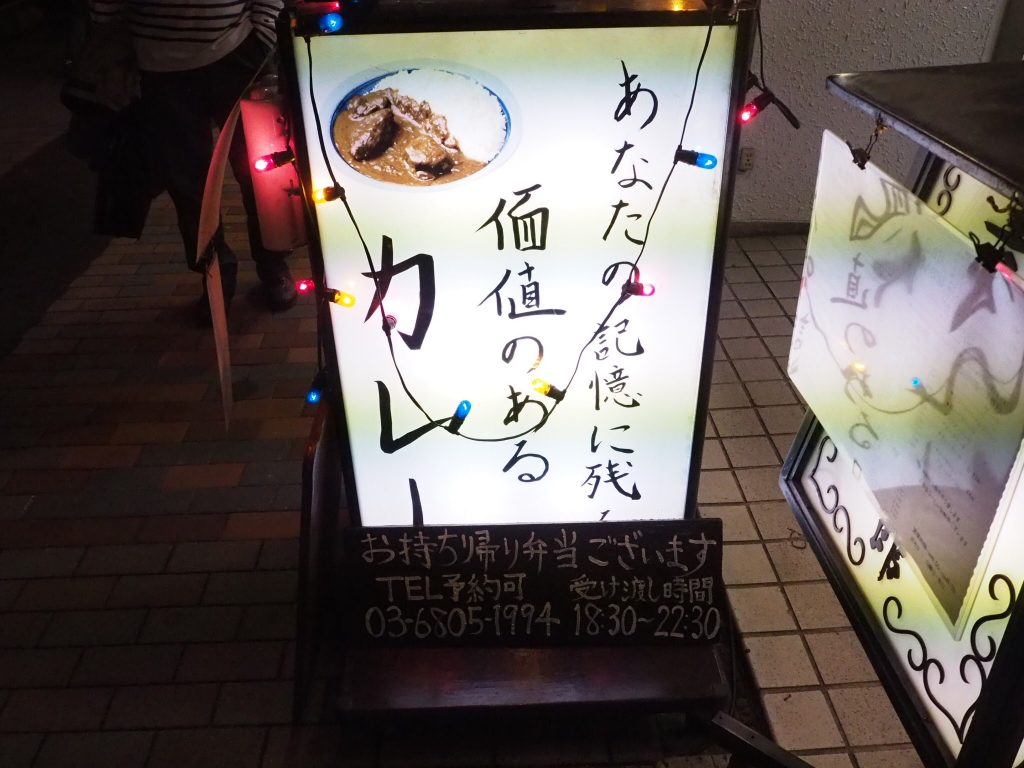 あなたの記憶に残る
価値のある
カレー
お持ち帰り弁当ございます
TEL予約可 受け渡し時間
03-6805-1994 18:30～22:30